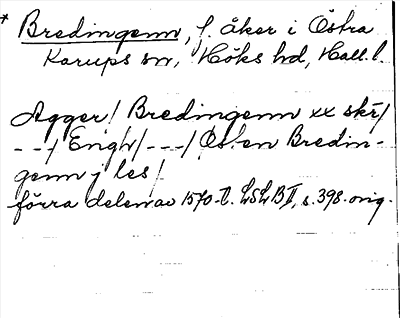 * Bredingenn, f. åker i Östra
Karups sn, Höks hd, Hall. l.
Agger / Bredingenn xx skr /
- - / Engh / - - - / Östen Bredin-
genn j les /
förra delen av 1570-t. LSLB II, s. 398. orig.